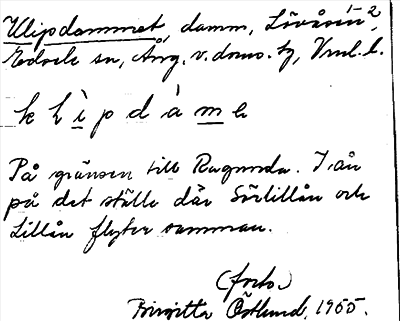 Klipdammet, damm, Lövåsen 1-2,
Edsele sn, Ång. v. doms. tg, Vnl. l.
k l i p d à m e
På gränsen till Ragunda. I ån
på det ställe där Sörlillån och
Lillån flyter samman.
(forts.)
Birgitta Östlund, 1955.